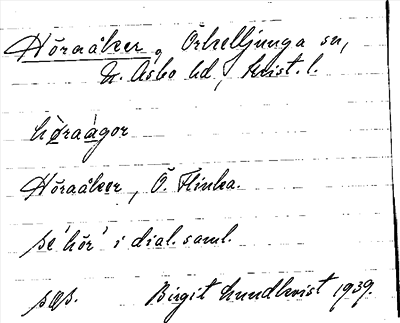 Höraåker, Örkelljunga sn,
N. Åsbo hd, Krist. l.
høraågor
Höraåker, Ö. Flinka.
se 'hör' i dial. saml.
Birgit Lundkvist 1939.